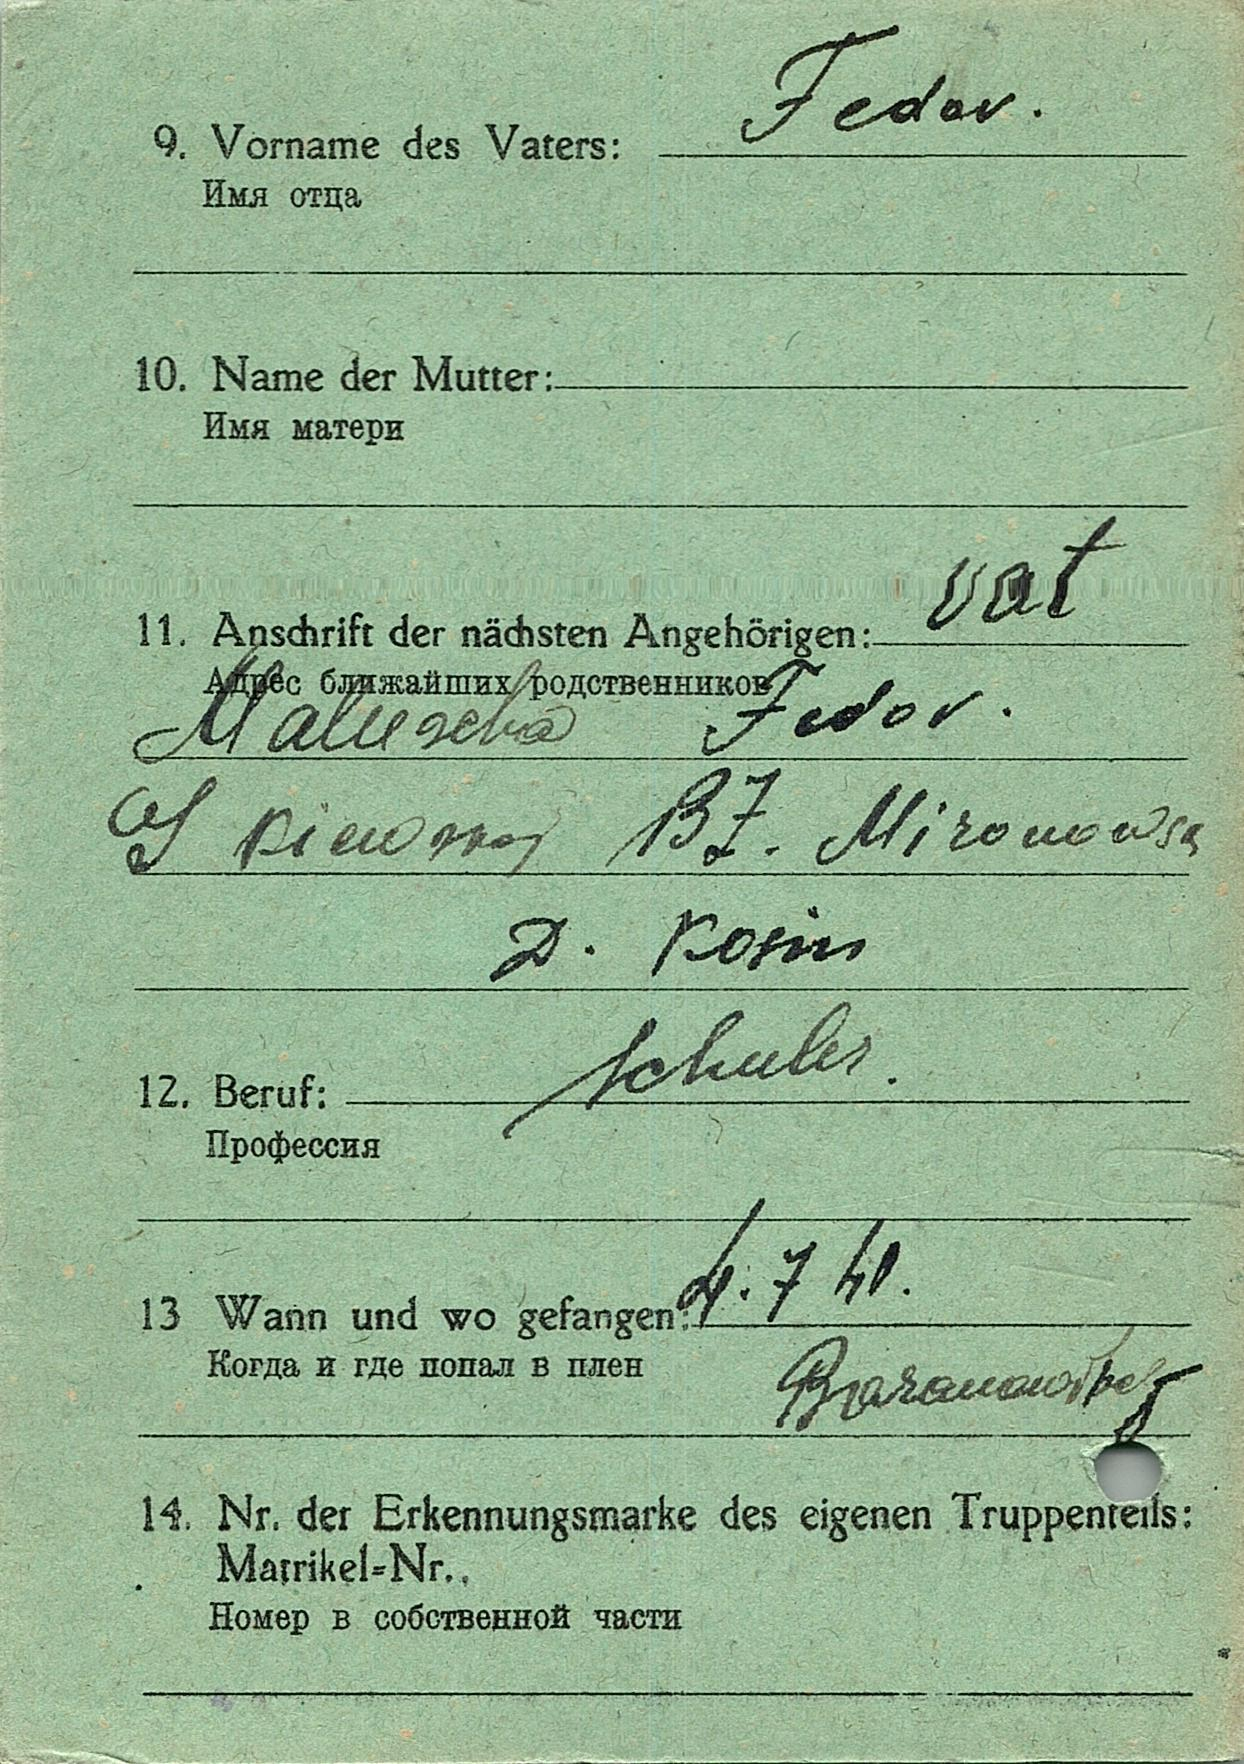 9. Vorname des Vaters: Fedor.
Имя отца
10. Name der Mutter:
Имя матери
11. Anschrift der nächsten Angehörigen: vat
Адрес ближайших родственников
Fedor.
Mironowsa
D. Kosin
12. Beruf: Schuler.
Профессия
13 Wann und wo gefangen: 4. 7 41.
Когда и где попал в плен
14. Nr. der Erkennungsmarke des eigenen Truppenteils:
Matrikel=Nr..
Номер в собственной части